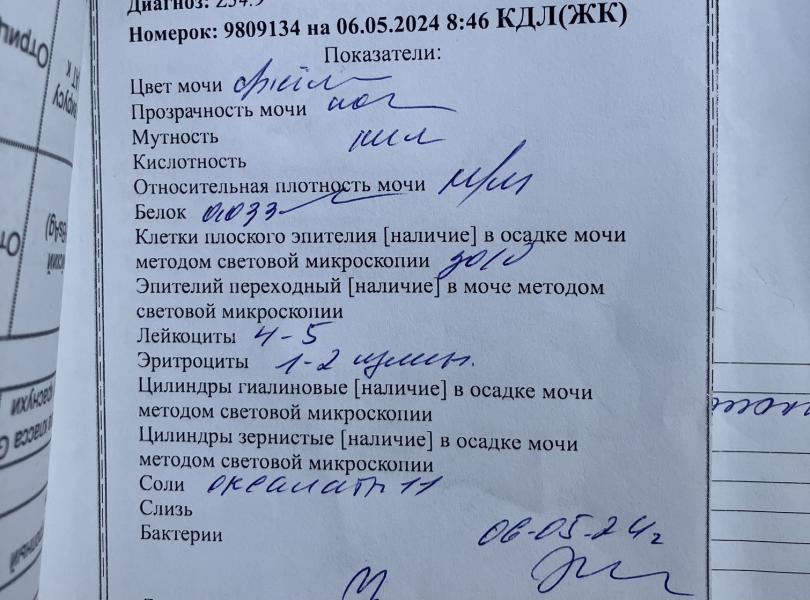 Диагноз: Z34.9
Номерок: 9809134 на 06.05.2024 8:46 КДЛ(ЖК)
Показатели:
Цвет мочи
Прозрачность мочи
Мутность
Кислотность
Относительная плотность мочи м/м
Белок 0.033
Клетки плоского эпителия [наличие] в осадке мочи
методом световой микроскопии
Эпителий переходный [наличие] в моче методом
световой микроскопии
Лейкоциты 4-5
Эритроциты 1-2 измен.
Цилиндры гиалиновые [наличие] в осадке мочи
методом световой микроскопии
Цилиндры зернистые [наличие] в осадке мочи
методом световой микроскопии
Соли оксалаты 11
Слизь
Бактерии
06.05.24г